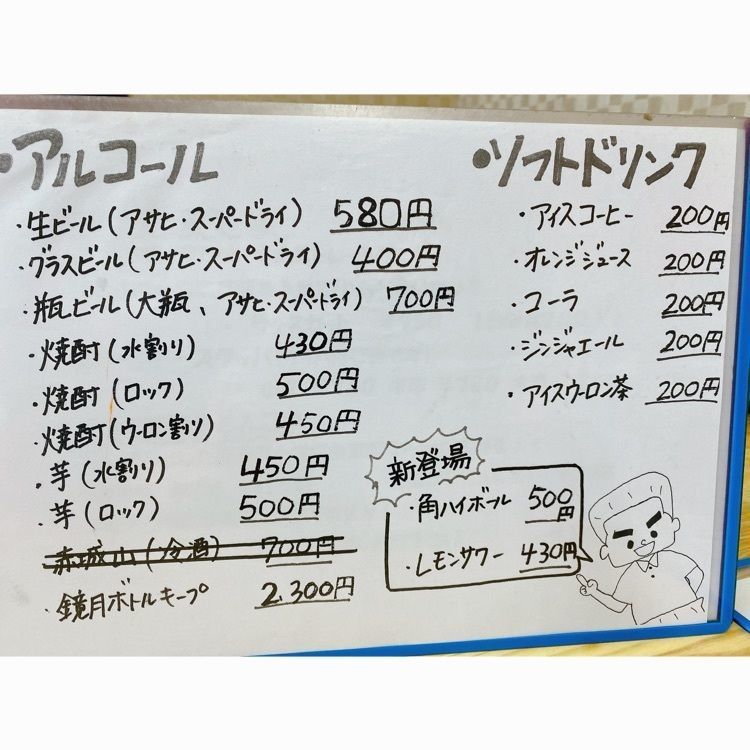 ・アルコール
・生ビール(アサヒ・スーパードライ) 580円
・グラスビール(アサヒ・スーパードライ) 400円
・瓶ビール(大瓶、アサヒ・スーパードライ) 700円
・焼酎(水割り) 430円
・焼酎(ロック) 500円
・焼酎(ウーロン割り) 450円
・芋(水割り) 450円
・芋(ロック) 500円
赤城山(冷酒) 700円
・鏡月ボトルキープ 2.300円
・ソフトドリンク
・アイスコーヒー 200円
・オレンジジュース 200円
・コーラ 200円
・ジンジャエール 200円
・アイスウーロン茶 200円
新登場
・角ハイボール 500円
・レモンサワー 430円